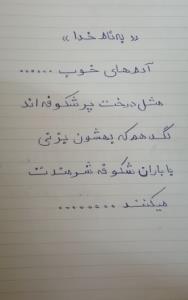 « به نام خدا »
آدم‌های خوب ......
مثل درخت پر شکوفه اند
لگد هم که بهشون بزنی
با باران شکوفه شرمندت
میکنند ........